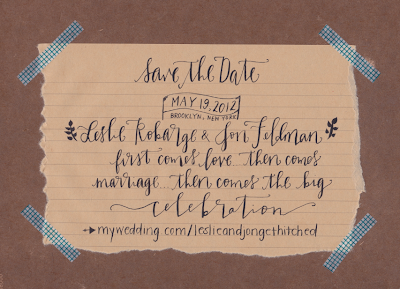 Save the Date
MAY 19, 2012
BROOKLYN, NEW YORK
Leslie Robarge & Jon Feldman
first comes love then comes
marriage... then comes the big
celebration
mywedding.com/leslieandjongethitched